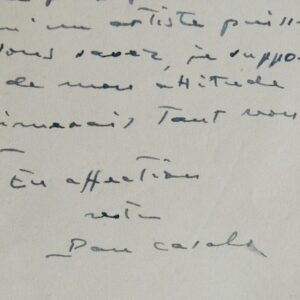 qu'un artiste puiss
Vous savez, je suppo
de mon attitude
imerais tant vou
En affection
votre
Pau Casals